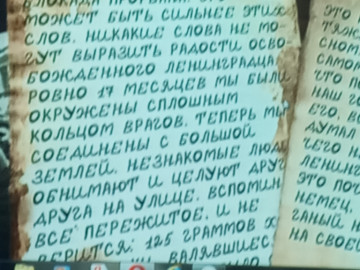 БЛОКАДА
МОЖЕТ БЫТЬ СИЛЬНЕЕ ЭТИХ
СЛОВ. НИКАКИЕ СЛОВА НЕ МО-
ГУТ ВЫРАЗИТЬ РАДОСТИ ОСВО-
БОЖДЕННОГО ЛЕНИНГРАДЦА
РОВНО 17 МЕСЯЦЕВ МЫ БЫЛИ
ОКРУЖЕНЫ СПЛОШНЫМ
КОЛЬЦОМ ВРАГОВ. ТЕПЕРЬ МЫ
СОЕДИНЕНЫ С БОЛЬШОЙ
ЗЕМЛЕЙ. НЕЗНАКОМЫЕ ЛЮД
ОБНИМАЮТ И ЦЕЛУЮТ ДРУГ
ДРУГА НА УЛИЦЕ. ВСПОМИН
ВСЕ ПЕРЕЖИТОЕ. И НЕ
ВЕРИТСЯ: 125 ГРАММОВ Х
ВАЛЯВШИЕС
ЭТО
ТЯЖ
СНОМ
САМОМ
ЧТО
НАШ
ЕГО, ВС
ДУМАЛ
ЧЕГО Н
ЛЕНИНГ
ЭТО ПОТ
НЕМЕЦ,
ГАНЫЙ Н
НА СВОЕ